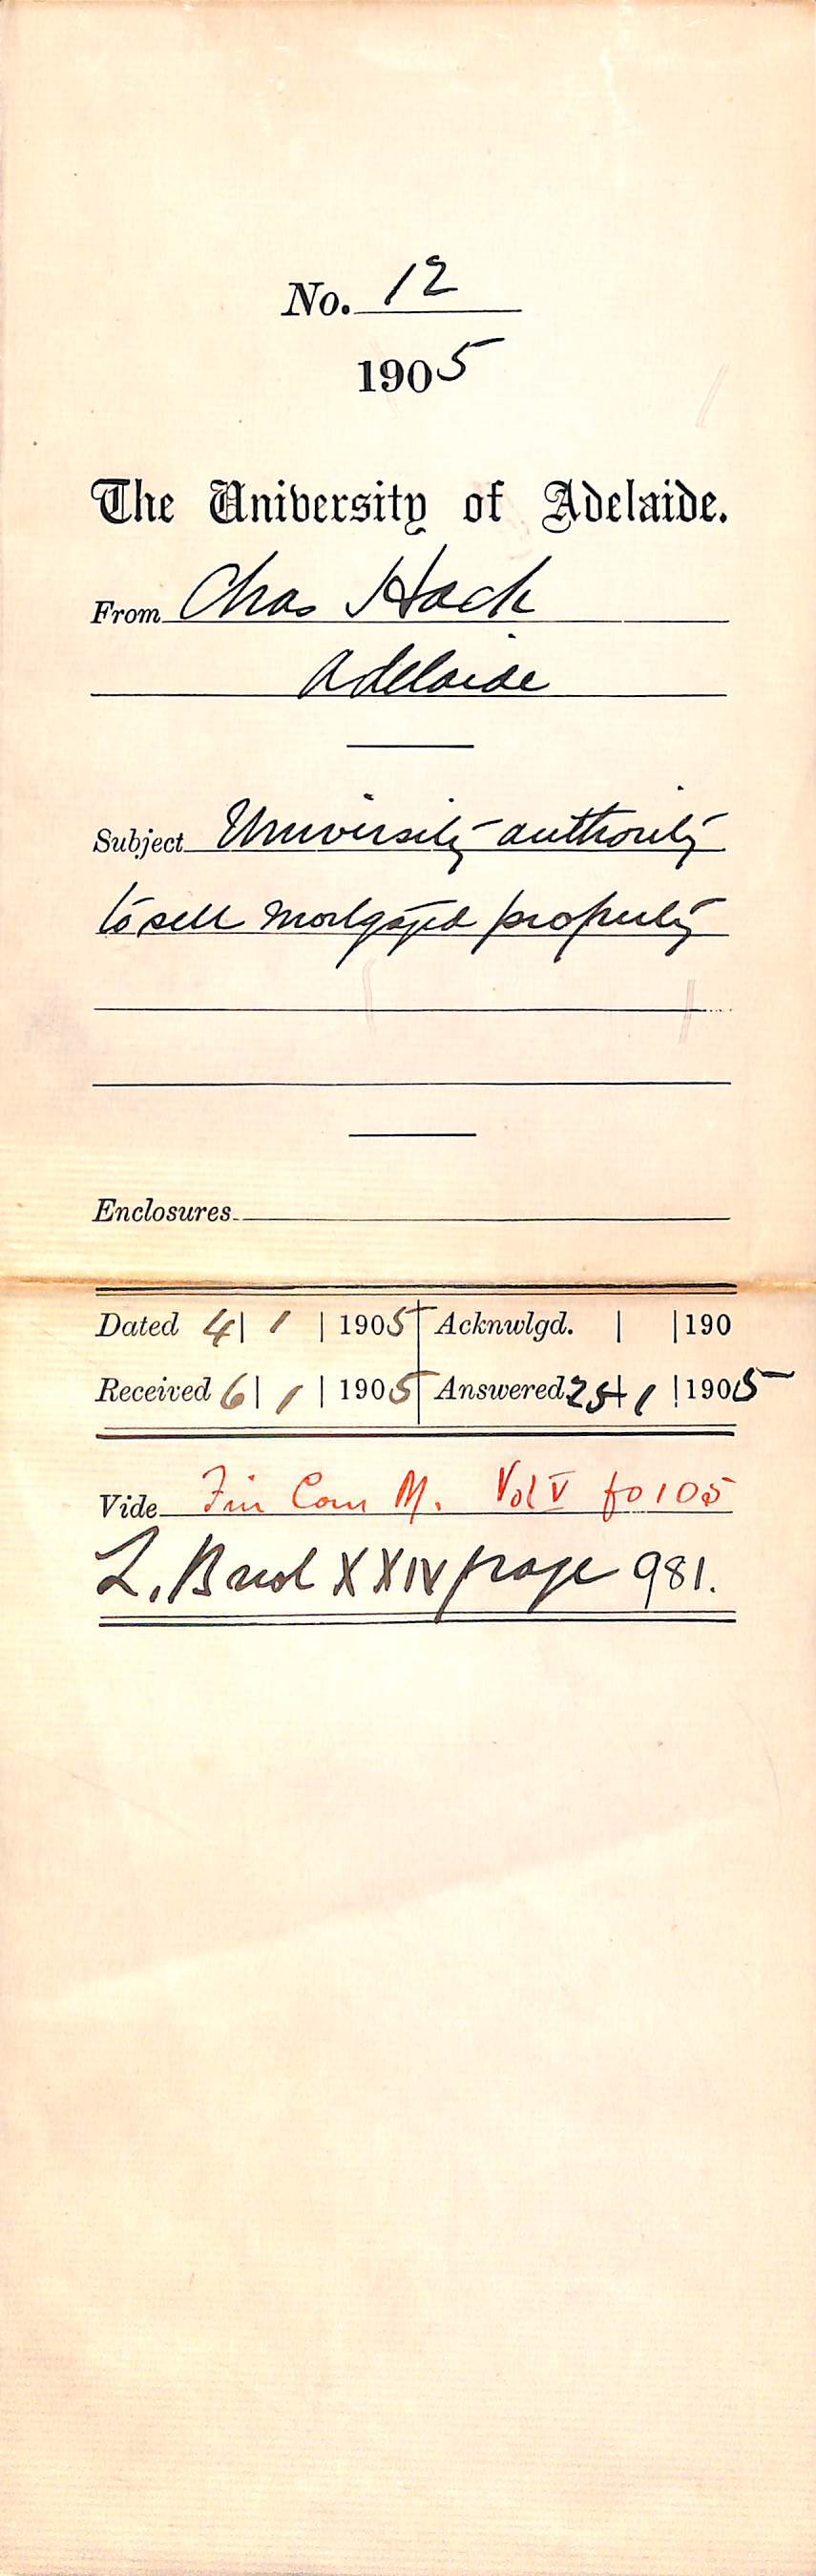 No. 12
1905
The University of Adelaide.
From Chas Hack
Adelaide
Subject University authority
to sell mortgaged property
Enclosures
Dated 4 | 1 | 1905 Acknwlgd. | | 190
Received 6 | 1 | 1905 Answered 25 | 1 | 1905
Vide Fin Com M. Vol V fo 105
L. Book XXIV page 981.